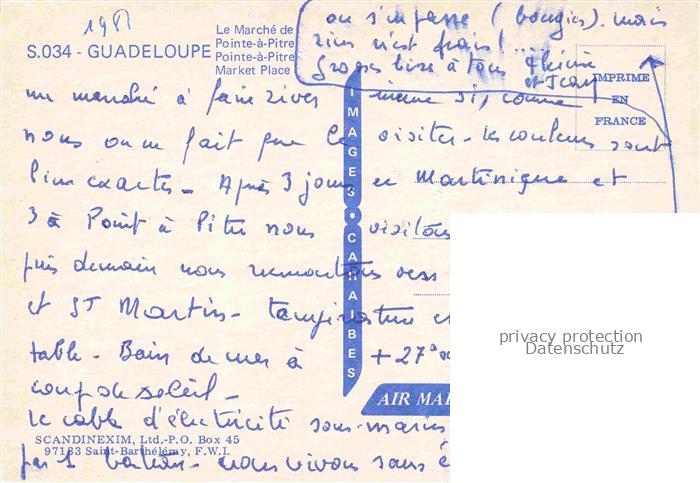 1981
S.034 - GUADELOUPE
Le Marché de
Pointe-à-Pitre
Pointe-à-Pitre
Market Place
on s'en passe (bougies). mais
rien n'est frais!....
Grosses bises à tous
et Jean
IMPRIME
EN
FRANCE
un marché à faire rêver même si, comme
nous on ne fait que le visiter - les couleurs sont
exactes - Après 3 jours en Martinique et
3 à Point à Pitre nous visitons
puis demain nous remontons vers
et St Martin - température
table - Bain de mer à +27°
coup de soleil -
Le cable d'électricité sous-marin
par 1 bateau - nous vivons sans
IMAGES • CARAIBES
AIR MAI
SCANDINEXIM, Ltd.-P.O. Box 45
97133 Saint-Barthélémy, F.W.I.
privacy protection
Datenschutz